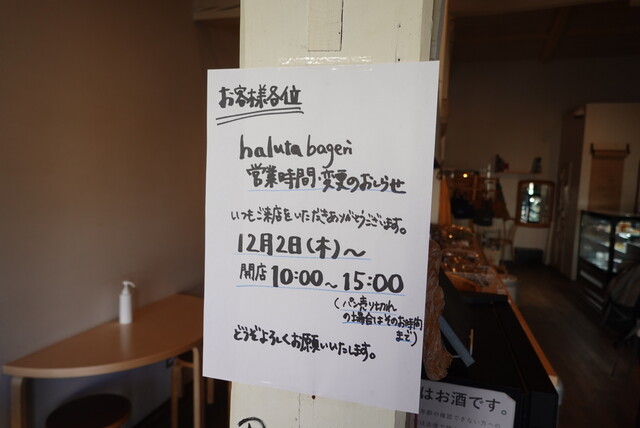 お客様各位
haluta bageri
営業時間・変更のおしらせ
いつもご来店をいただきありがとうございます。
12月2日(木)〜
開店 10:00〜15:00
(パン売り切れ
の場合はそのお時間
まで)
どうぞよろしくお願いいたします。
はお酒です。